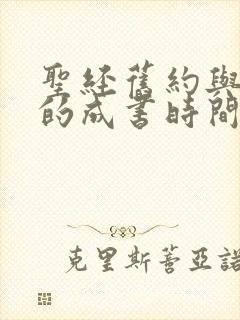 聖經舊約與
的成書時間
克里斯蒂亞諾